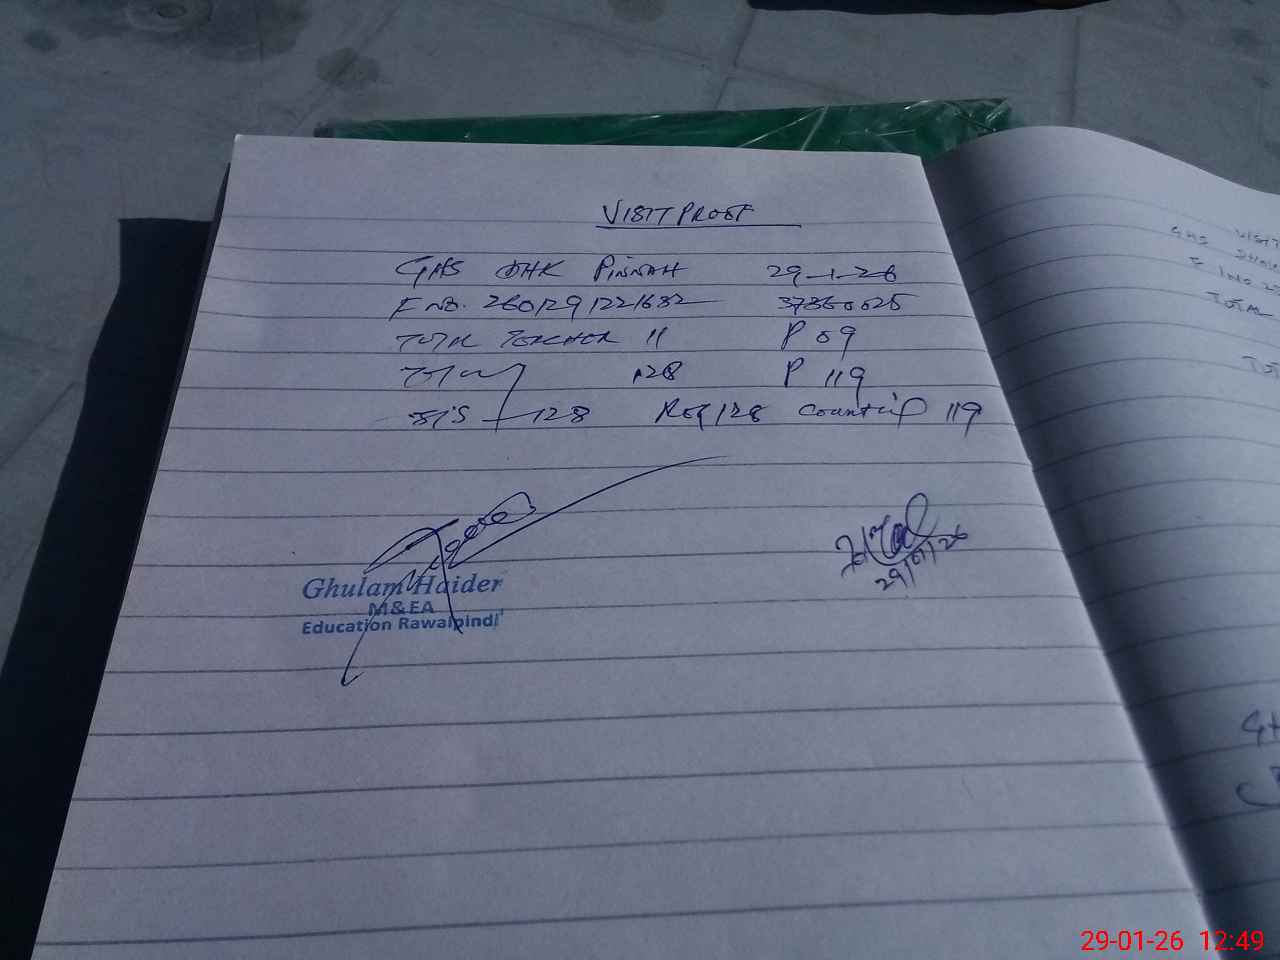 VISIT PROOF
GHS DHK PINNAH 29-1-26
F NO. 2601291221682 37360025
TOTAL TEACHER 11 P 09
TOTAL 128 P 119
SIS 128 Reg 128 Counting 119
Ghulam Haider
M&EA
Education Rawalpindi
29/01/26
VISIT
GHS
TOTAL
29-01-26 12:49